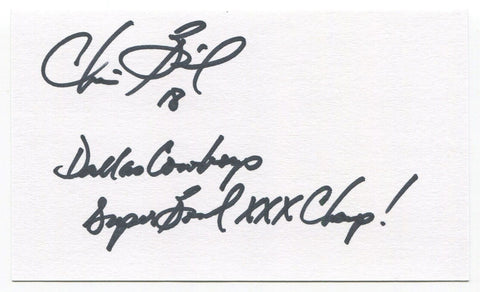 Chris Boniol
18
Dallas Cowboys
Super Bowl XXX Champ!